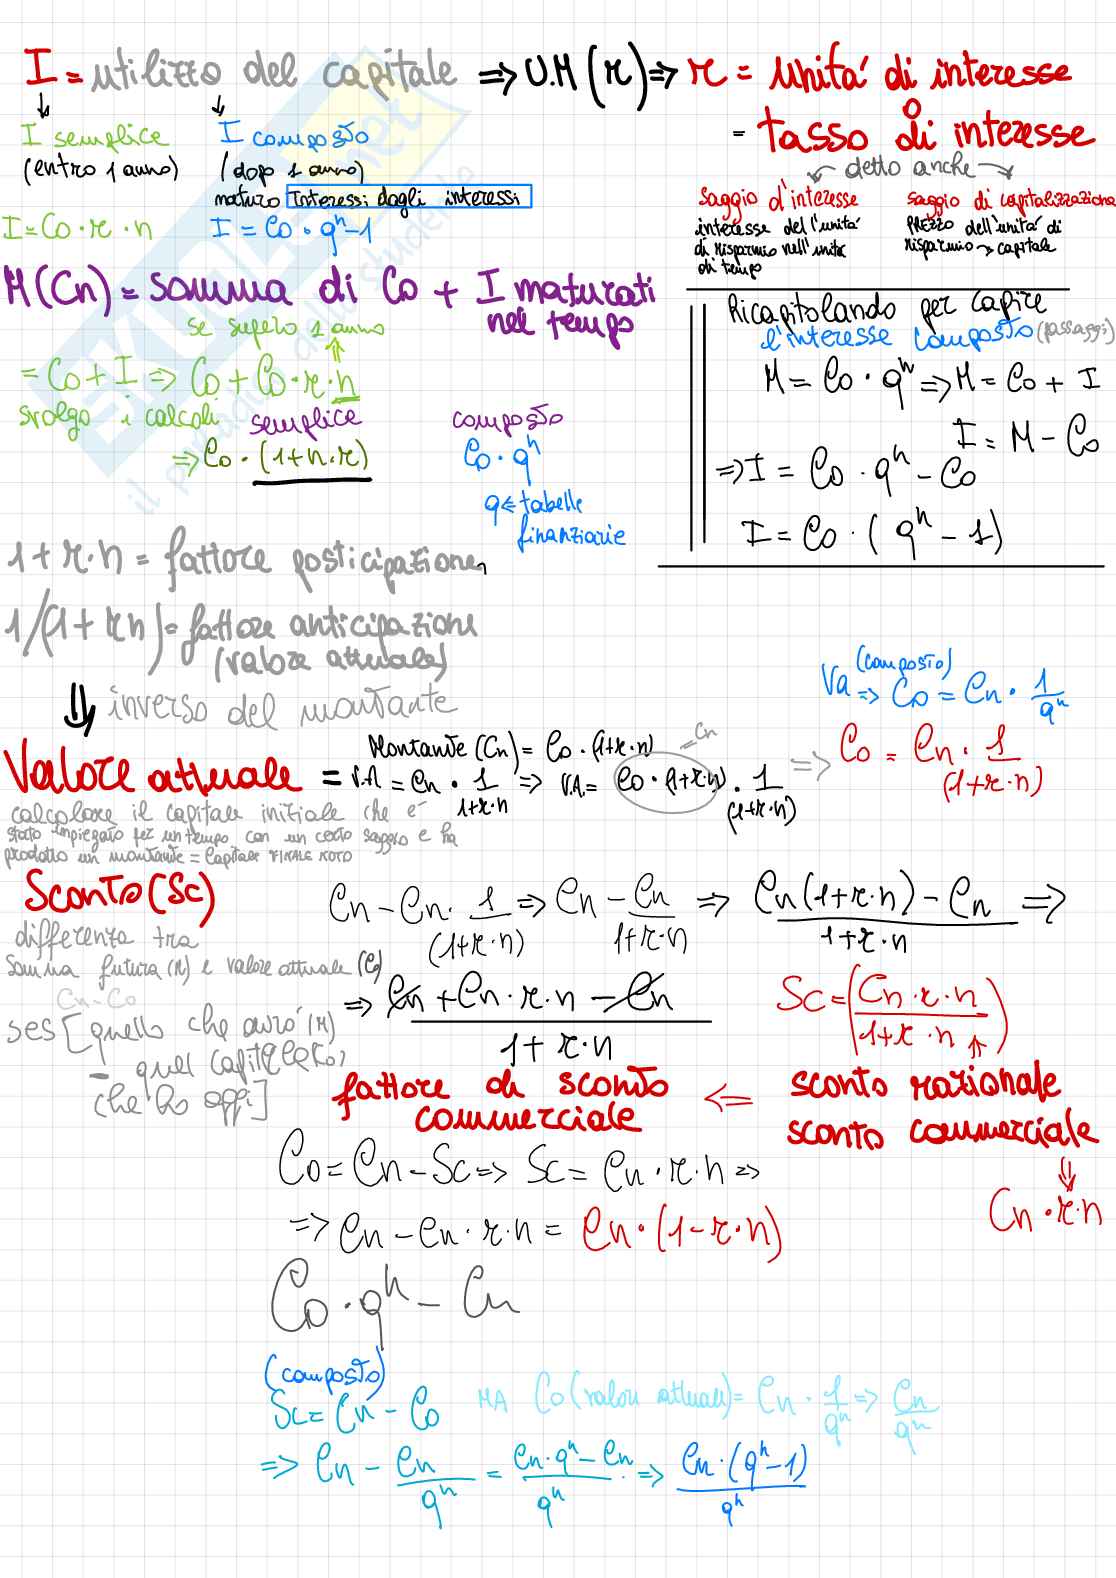 I = utilizzo del capitale ⇒ U.M (r) ⇒ r = unità di interesse
o
= tasso di interesse
↓ ↓
I semplice
(entro 1 anno)
I composto
(dopo 1 anno)
maturo Interessi dagli interessi
I = Co · r · n
I = Co · qⁿ-1
detto anche
saggio d'interesse
interesse dell'unità
di risparmio nell'unità
di tempo
saggio di capitalizzazione
PREZZO dell'unità di
risparmio → capitale
M(Cn) = somma di Co + I maturati
nel tempo
se supero 1 anno
= Co + I ⇒ Co + Co · r · n
svolgo i calcoli
semplice
⇒ Co · (1+n·r)
composto
Co · qⁿ
q ⇐ tabelle
finanziarie
Ricapitolando per capire
l'interesse composto (passaggi)
M = Co · qⁿ ⇒ M = Co + I
I = M - Co
⇒ I = Co · qⁿ - Co
I = Co · (qⁿ - 1)
1 + r·n = fattore posticipazione
1/(1+rn) = fattore anticipazione
(valore attuale)
⇓ inverso del montante
Va (composto) ⇒ Co = Cn · 1/qⁿ
Montante (Cn) = Co · (1+r·n)
= Cn
Valore attuale = V.A = Cn · 1/1+r·n ⇒ V.A. = Co · (1+r·n) · 1/(1+r·n) ⇒ Co = Cn · 1/(1+r·n)
calcolare il capitale iniziale che è
stato impiegato per un tempo con un certo saggio e ha
prodotto un montante = Capitale FINALE NOTO
Sconto (Sc)
differenza tra
somma futura (M) e valore attuale (Co)
Cn - Co
ses [quello che avrò (M)
- quel capitale (Co)
che ho oggi]
Cn - Cn · 1/(1+r·n) ⇒ Cn - Cn/1+r·n ⇒ Cn(1+r·n) - Cn/1+r·n ⇒
⇒ Cn + Cn · r · n - Cn/1 + r·n
Sc = (Cn · r · n/1+r · n)
sconto razionale
sconto commerciale
⇓
Cn · r · n
⇐
fattore di sconto
commerciale
Co = Cn - Sc ⇒ Sc = Cn · r · n ⇒
⇒ Cn - Cn · r · n = Cn · (1 - r · n)
Co · qⁿ - Cn
(composto)
Sc = Cn - Co MA Co (valore attuale) = Cn · 1/qⁿ ⇒ Cn/qⁿ
⇒ Cn - Cn/qⁿ = Cn·qⁿ - Cn/qⁿ ⇒ Cn · (qⁿ-1)/qⁿ